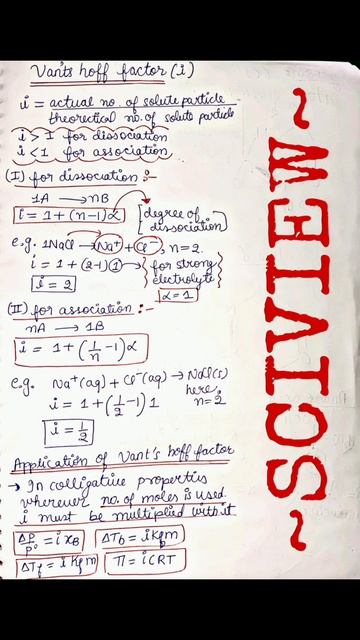 Vant's hoff factor (i)
i = actual no. of solute particle
theoretical no. of solute particle
i > 1 for dissociation
i < 1 for association
(I) for dissociation :-
1A → nB
i = 1 + (n-1)α
[degree of dissociation]
e.g. 1NaCl → Na⁺ + Cl⁻, n=2
i = 1 + (2-1) 1 → {for strong electrolyte}
α = 1
i = 2
(II) for association :-
nA → 1B
i = 1 + (1/n - 1)α
e.g. Na⁺(aq) + Cl⁻(aq) → NaCl(s)
here, n=2
i = 1 + (1/2 - 1) 1
i = 1/2
Application of Vant's hoff factor
→ In colligative propertis
wherever no. of moles is used.
i must be multiplied with it
ΔP/P° = i xB
ΔTb = i Kb m
ΔTf = i Kf m
Π = i CRT
~SCIVIEW~